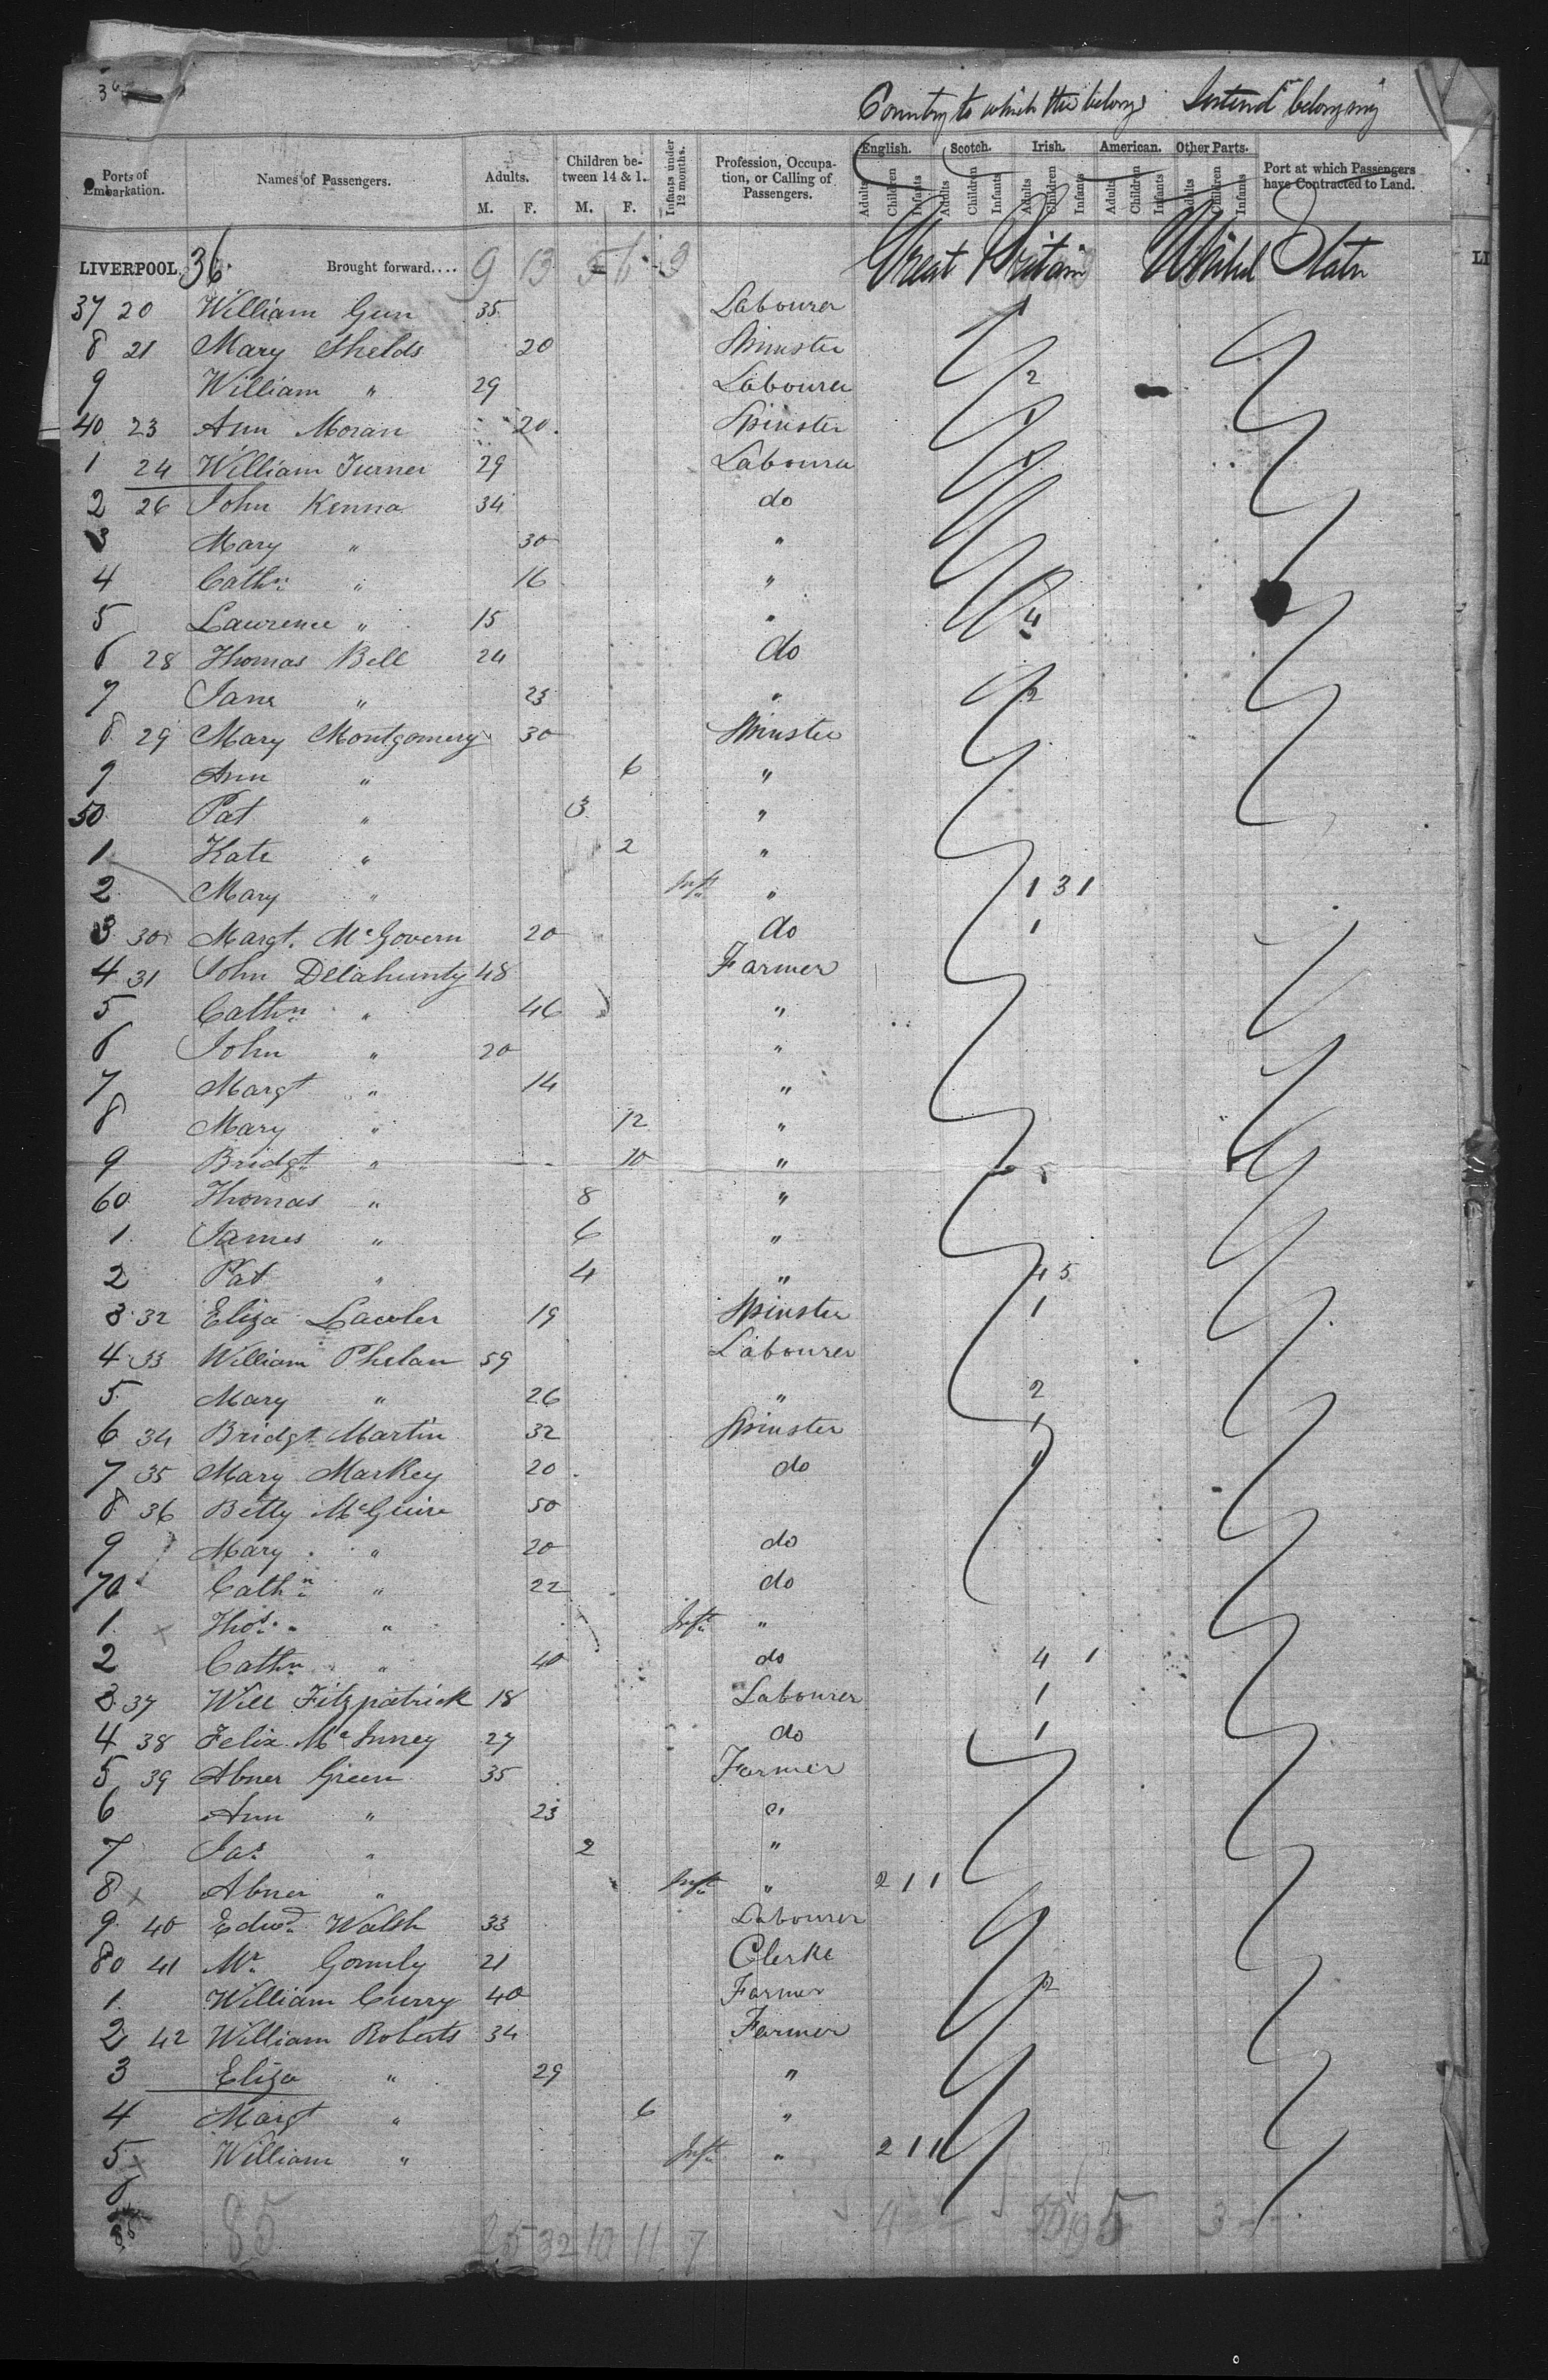 36
Country to which the belong Intend belonging
Ports of Embarkation. Names of Passengers. Adults. M. F. Children between 14 & 1. M. F. Infants under 12 months. Profession, Occupation, or Calling of Passengers. English. Adults Children Infants Scotch. Adults Children Infants Irish. Adults Children Infants American. Adults Children Infants Other Parts. Adults Children Infants Port at which Passengers have Contracted to Land.
LIVERPOOL, 36 Brought forward.... 9 13 5 6 3 Great Britain United States
37 20 William Gun 35 Labourer 1
8 21 Mary Shelds 20 Spinster
9 William " 29 Labourer 2
40 23 Ann Moran 20 Spinster 1
1 24 William Turner 29 Labourer 1
2 26 John Kenna 34 do
3 Mary " 30 "
4 Cathn " 16 "
5 Lawrence " 15 " 4
6 28 Thomas Bell 24 do
7 Jane " 23 " 2
8 29 Mary Montgomery 30 Spinster
9 Ann " 6 "
50 Pat " 3 "
1 Kate " 2 "
2 Mary " Inft " 1 3 1
3 30 Margt. McGovern 20 do 1
4 31 John Delahunty 48 Farmer
5 Cathn " 46 "
6 John " 20 "
7 Margt " 14 "
8 Mary " 12 "
9 Bridgt " 10 "
60 Thomas " 8 "
1 James " 6 "
2 Pat " 4 " 4 5
3 32 Eliza 19 Spinster 1
4 33 William Phelan 59 Labourer
5 Mary " 26 " 2
6 34 Bridgt Martin 32 Spinster 1
7 35 Mary Markey 20 do 1
8 36 Betty McGuire 50
9 Mary " 20 do
70 Cathn " 22 do
1 Thos " Inft "
2 Cathn " 40 do 4 1
3 37 Will Fitzpatrick 18 Labourer 1
4 38 Felix 27 do 1
5 39 Abner Green 35 Farmer
6 Ann " 23 "
7 Jas " 2 "
8 Abner " Inft " 2 1 1
9 40 Edwd Walsh 33 Labourer
80 41 Mr. Gormly 21 Clerke
1 William Curry 40 Farmer 2
2 42 William Roberts 34 Farmer
3 Eliza " 29 "
4 Margt " 6 "
5 William " Inft " 2 1 1
6
85 85 25 32 10 11 7 4 2 2 50 19 5 3